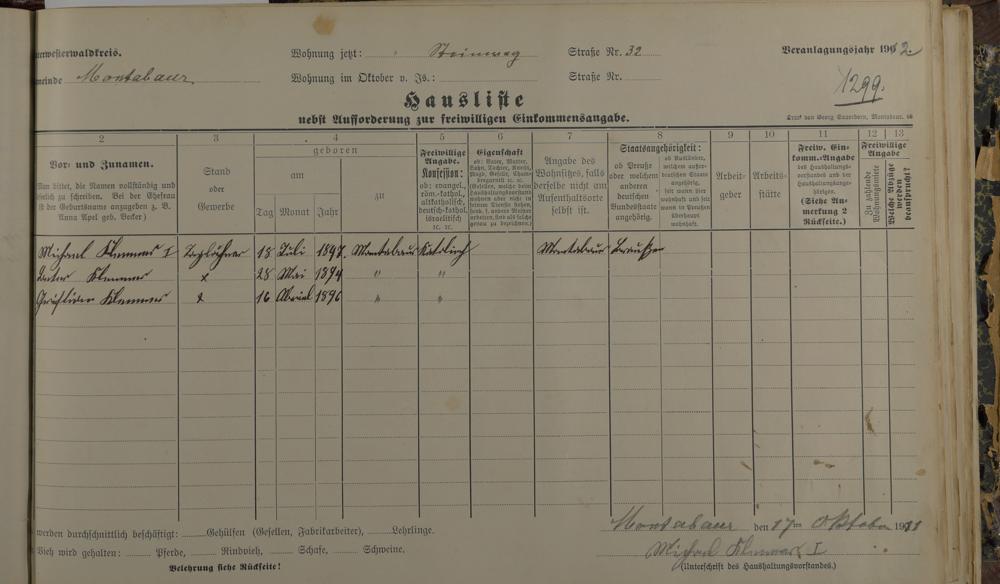 erwesterwaldkreis. Wohnung jetzt: Steinweg Straße Nr. 32 Veranlagungsjahr 1912.
meinde Montabaur Wohnung im Oktober v. Js.: Straße Nr.
1299.
Hausliste
nebst Aufforderung zur freiwilligen Einkommensangabe.
Druck von Georg Sauerborn, Montabaur.
2 3 4 5 6 7 8 9 10 11 12 13
Vor- und Zunamen.
Man bittet, die Namen vollständig und
deutlich zu schreiben. Bei der Ehefrau
ist der Geburtsname anzugeben z. B.
Anna Apel geb. Becker)
Stand
oder
Gewerbe
geboren
am
Tag Monat Jahr
zu
Freiwillige
Angabe.
Konfession:
ob: evangel.,
röm.-kathol.,
altkatholisch,
deutsch-kathol.
israelitisch
ꝛc. ꝛc.
Eigenschaft
Angabe des
Wohnsitzes, falls
derselbe nicht am
Aufenthaltsorte
selbst ist.
Staatsangehörigkeit:
ob Preuße
oder welchem
anderen
deutschen
Bundesstaate
angehörig.
ob Ausländer,
welchem außer-
deutschen Staate
angehörig,
seit wann hier
wohnhaft und seit
wann in Preußen
überhaupt
wohnhaft.
Arbeit-
geber
Arbeits-
stätte
Freiw. Ein-
komm.-Angabe
des Haushaltungs-
vorstandes und der
Haushaltungsange-
hörigen.
(Siehe An-
merkung 2
Rückseite.)
Freiwillige
Angabe
Zu zahlende
Wohnungsmiete
Welche Abzüge
werden
beansprucht?
Michael Klemmer I Taglöhner 18 Juli 1847. Montabaur Katolisch Montabaur Preußen
Klemmer x 28 Mai 1894 " "
Klemmer x 16 April 1896 " "
werden durchschnittlich beschäftigt: Gehülfen (Gesellen, Fabrikarbeiter), Lehrlinge.
Vieh wird gehalten: Pferde, Rindvieh, Schafe, Schweine.
Belehrung siehe Rückseite!
Montabaur den 17ten Oktober 1911
Michael Klemmer I
(Unterschrift des Haushaltungsvorstandes.)